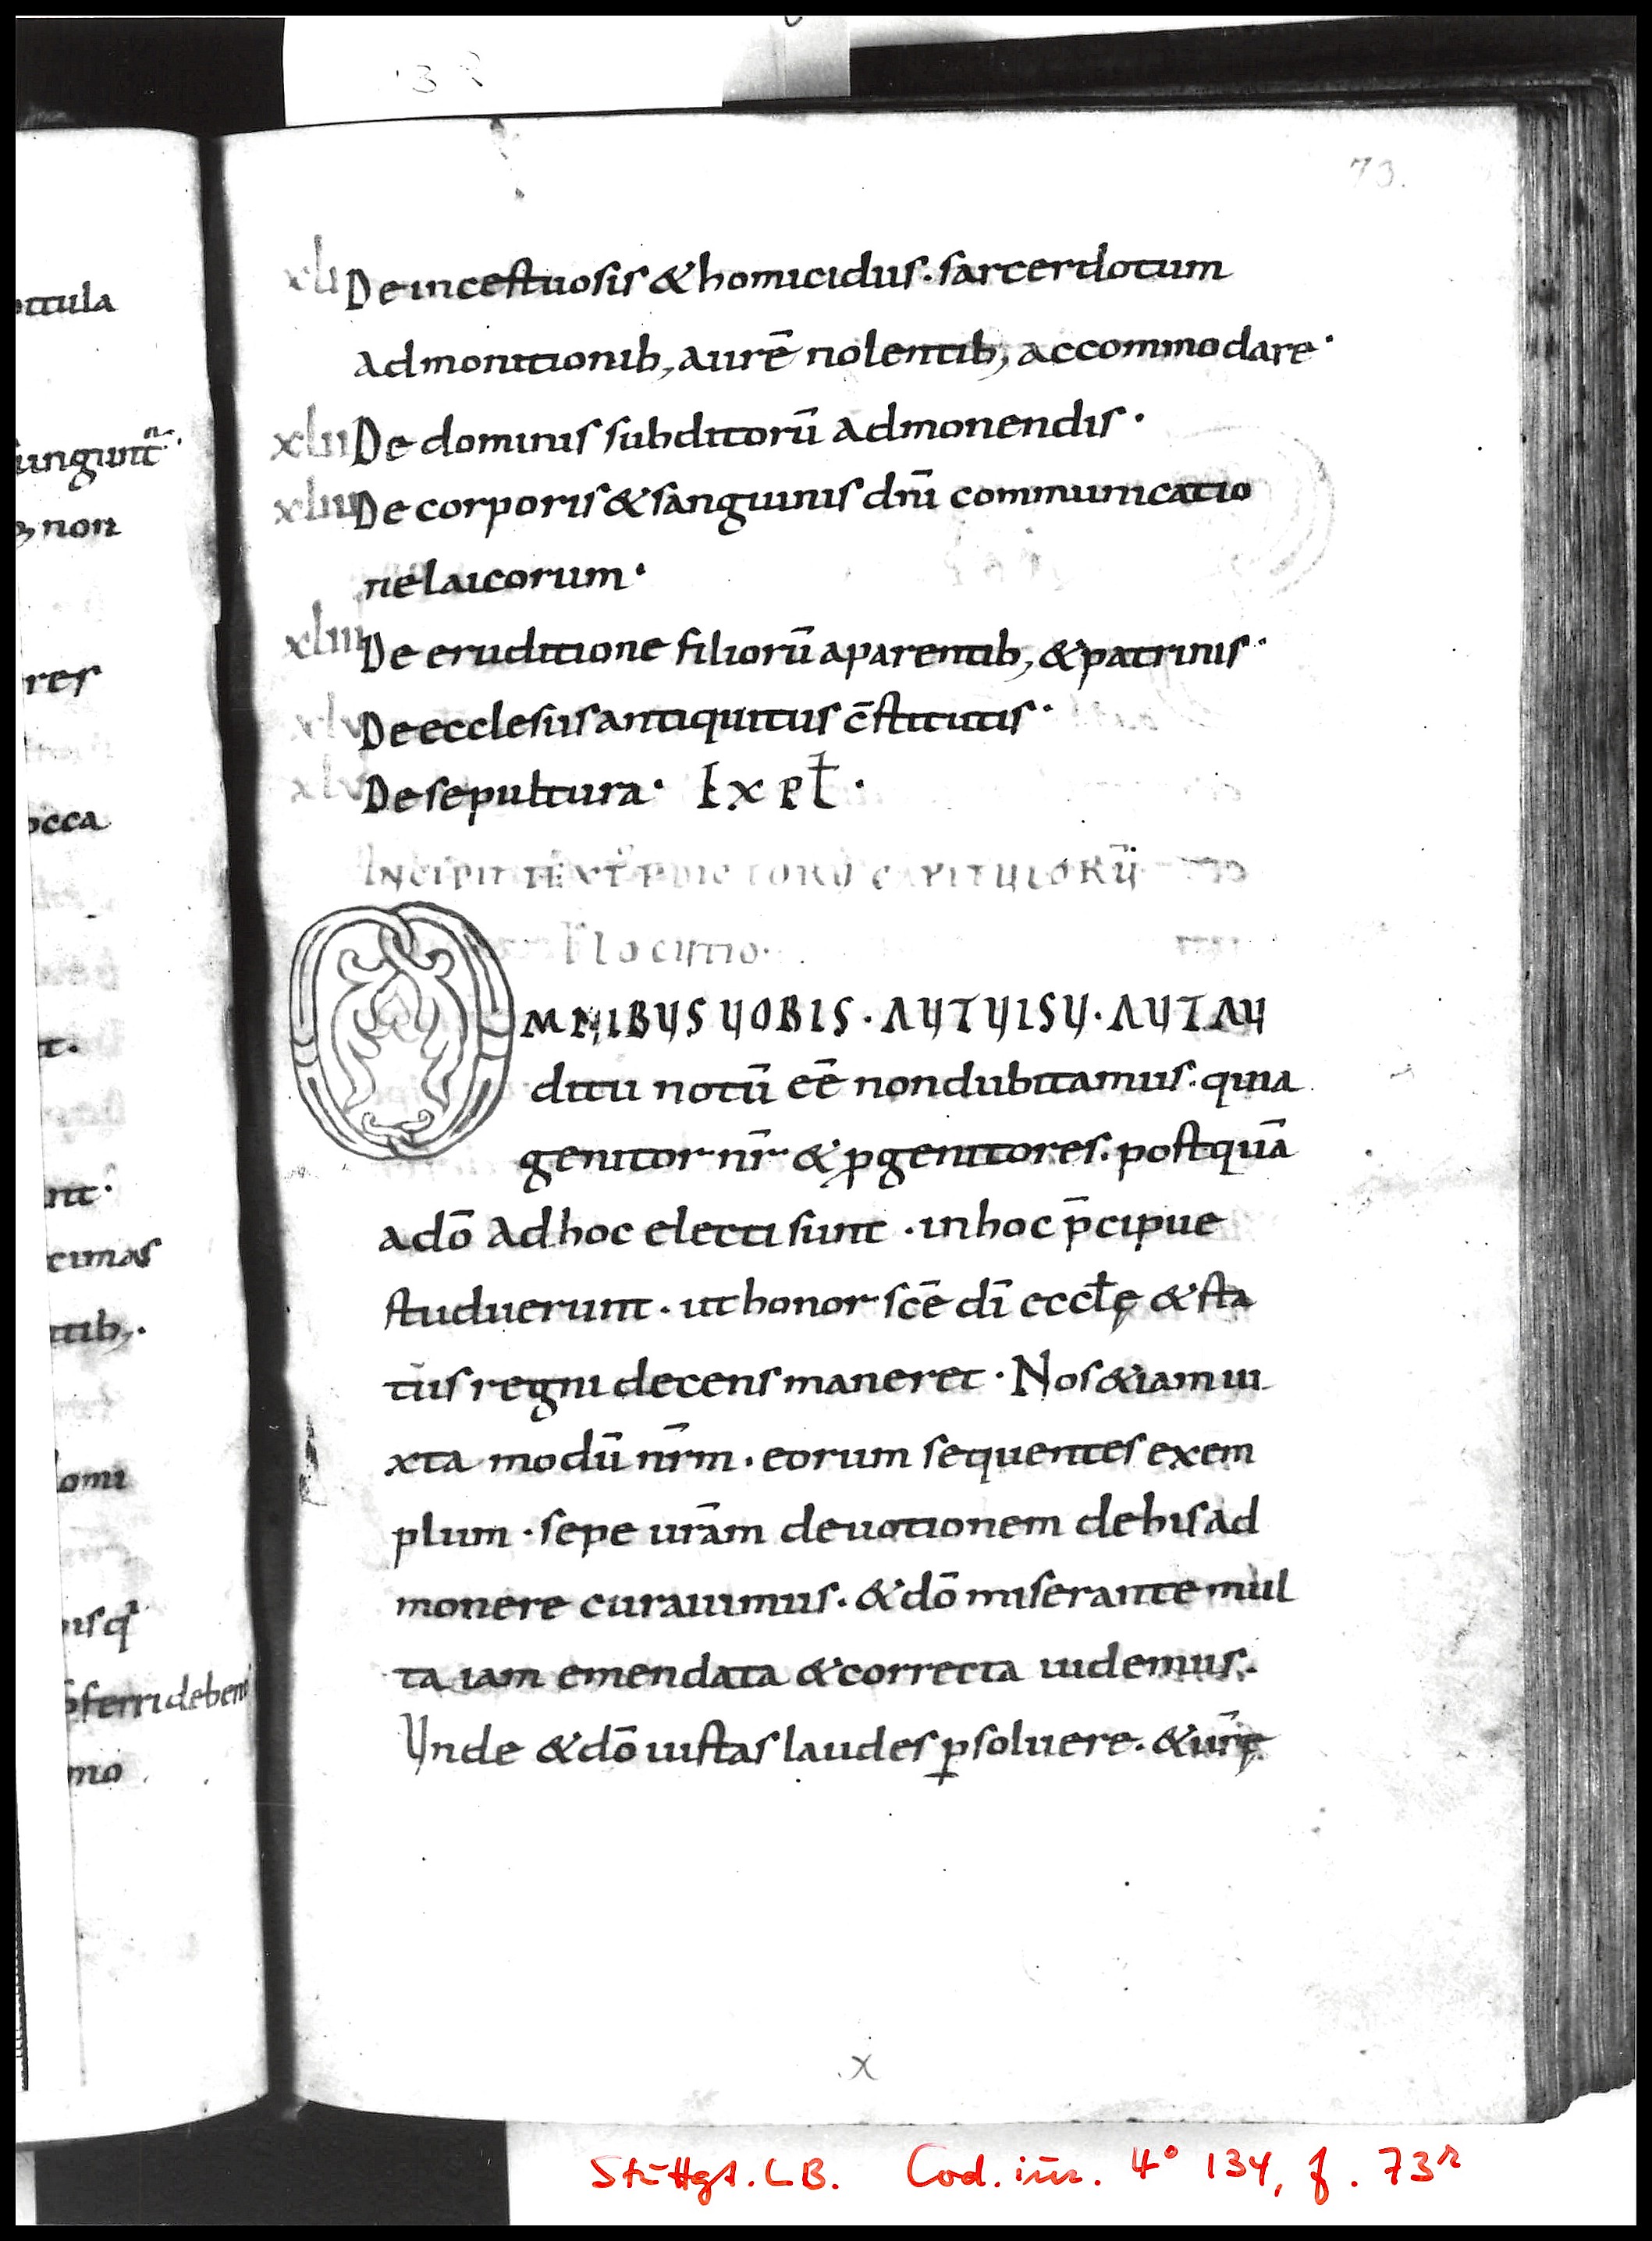 73.
ttula
iungunt n
non
res
occa
nt.
cimas
ntib;.
omi
isq
ferri debent
mo
xli De incestuosis & homicidiis. sarcerdotum
admonitionib; aurē nolentib; accommodare.
xlii De dominis subditorū admonendis.
xliii De corporis & sanguinis dnī communicatio
ne laicorum.
xliiii De eruditione filiorū a parentib; & patrinis.
xlv De ecclesiis antiquitus c̄stitutis.
xlvi De sepultura. Expł.
INCIPIT TEXT PDICTORŪ CAPITULORŪ
locutio.
OMNIBUS UOBIS. AUT UISU. AUT AU
ditu notū eē non dubitamus. quia
genitor nr̄ & ꝓgenitores. postquā
a dō ad hoc electi sunt. in hoc p̄cipue
studuerunt. ut honor scē dī eccłę & sta
tus regni decens maneret. Nos &iam iu
xta modū nr̄m. eorum sequentes exem
plum. sepe urām deuotionem de his ad
monere curauimus. & dō miserante mul
ta iam emendata & correcta uidemus.
Unde & dō iustas laudes ꝑsoluere. & ur̄ę
x
Stuttgt. LB. Cod. iur. 4° 134, f. 73r